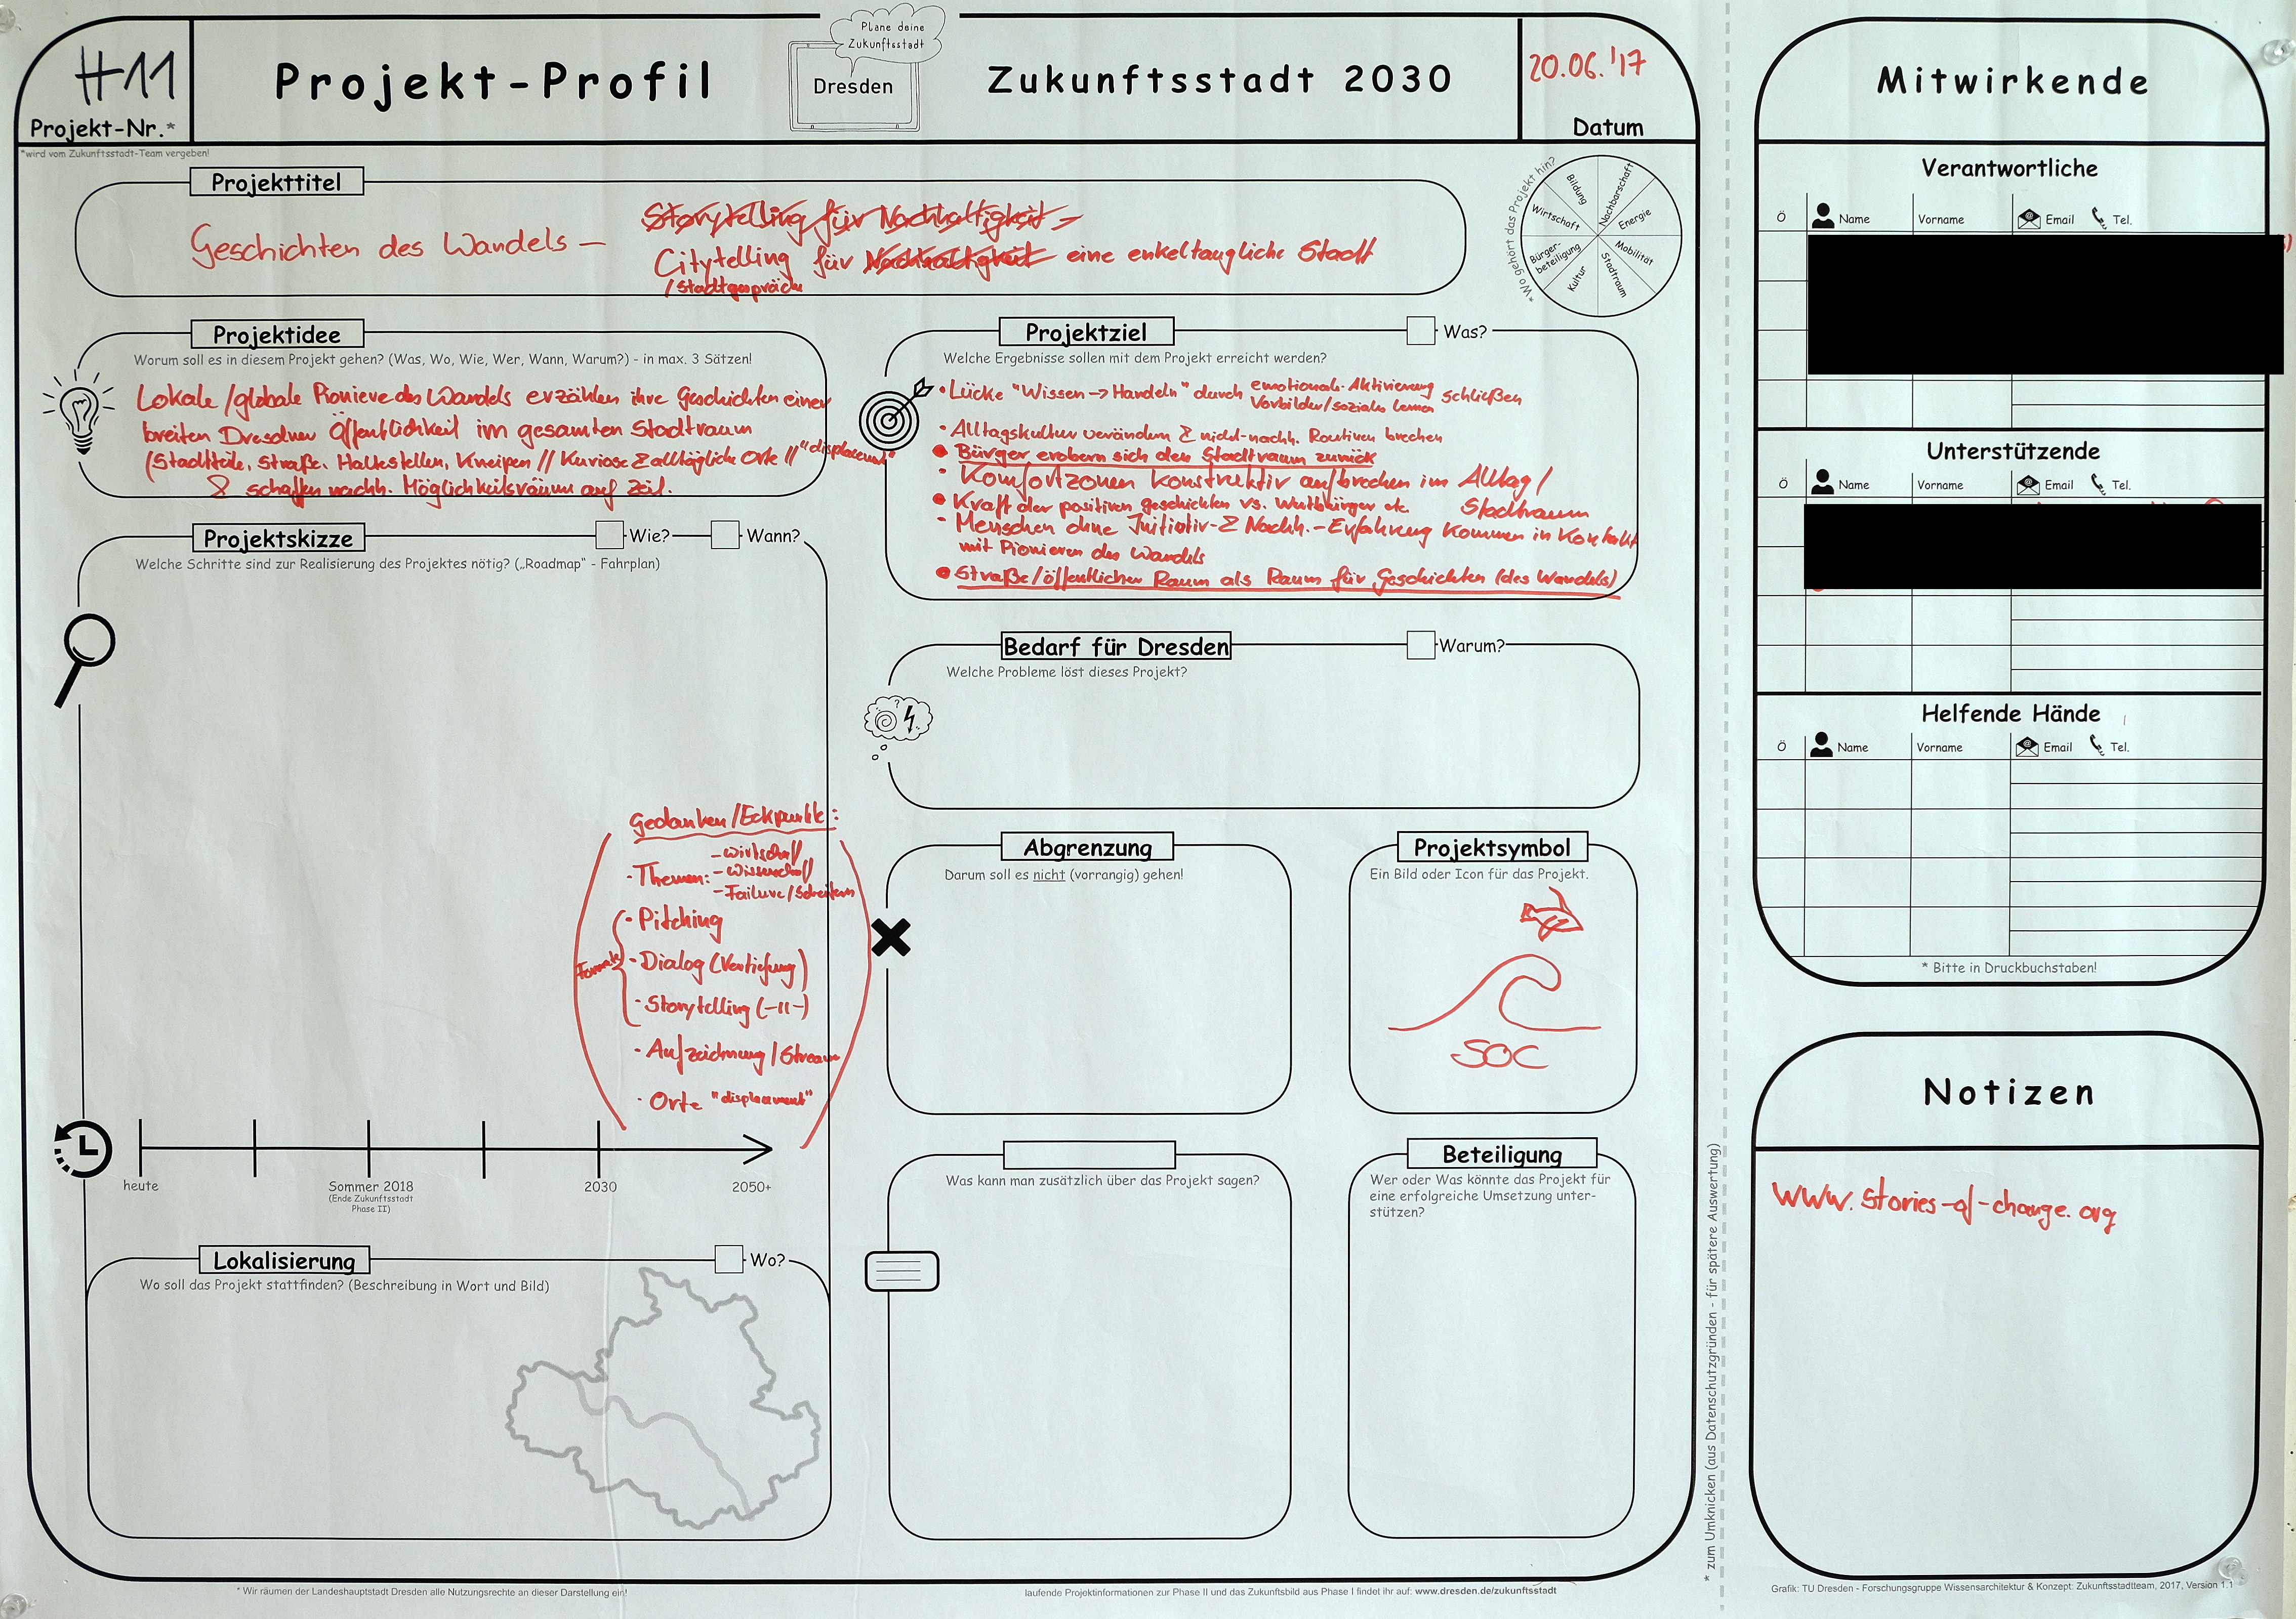 H11
Projekt-Nr.*
*wird vom Zukunftsstadt-Team vergeben!
Projekt-Profil
Plane deine
Zukunftsstadt
Dresden
Zukunftsstadt 2030
20.06.'17
Datum
Projekttitel
Geschichten des Wandels –
Storytelling für Nachhaltigkeit –
Citytelling für Nachhaltigkeit eine enkeltaugliche Stadt
/Stadtgespräche
*Wo gehört das Projekt hin?
Bildung
Nachbarschaft
Energie
Mobilität
Stadtraum
Kultur
Bürger-
beteiligung
Wirtschaft
Projektidee
Worum soll es in diesem Projekt gehen? (Was, Wo, Wie, Wer, Wann, Warum?) - in max. 3 Sätzen!
Lokale/globale Pioniere des Wandels erzählen ihre Geschichten einer
breiten Dresdner Öffentlichkeit im gesamten Stadtraum
(Stadtteile, Straße, Haltestellen, Kneipen // Kuriose & alltägliche Orte // "displacement"
& schaffen nachh. Möglichkeitsräume auf Zeit.
Projektziel
Was?
Welche Ergebnisse sollen mit dem Projekt erreicht werden?
• Lücke "Wissen -> Handeln" durch emotionale Aktivierung schließen
Vorbilder/soziales lernen
• Alltagskultur verändern & nicht-nachh. Routinen brechen
• Bürger erobern sich den Stadtraum zurück
• Komfortzonen konstruktiv aufbrechen im Alltag/
Stadtraum
• Kraft der positiven Geschichten vs. Wutbürger etc.
- Menschen ohne Initiativ- & Nachh.-Erfahrung kommen in Kontakt
mit Pionieren des Wandels
• Straße/öffentlicher Raum als Raum für Geschichten (des Wandels)
Projektskizze
Wie?
Wann?
Welche Schritte sind zur Realisierung des Projektes nötig? („Roadmap" - Fahrplan)
Gedanken/Eckpunkte:
• Themen:
- Wirtschaft
- Wissenschaft
- Failure/Scheitern
Formate
• Pitching
• Dialog (Vertiefung)
• Storytelling (-11-)
• Aufzeichnung/Stream
• Orte "displacement"
heute
Sommer 2018
(Ende Zukunftsstadt
Phase II)
2030
2050+
Bedarf für Dresden
Warum?
Welche Probleme löst dieses Projekt?
Abgrenzung
Darum soll es nicht (vorrangig) gehen!
Projektsymbol
Ein Bild oder Icon für das Projekt.
SOC
Lokalisierung
Wo?
Wo soll das Projekt stattfinden? (Beschreibung in Wort und Bild)
Was kann man zusätzlich über das Projekt sagen?
Beteiligung
Wer oder Was könnte das Projekt für
eine erfolgreiche Umsetzung unter-
stützen?
* Wir räumen der Landeshauptstadt Dresden alle Nutzungsrechte an dieser Darstellung ein!
laufende Projektinformationen zur Phase II und das Zukunftsbild aus Phase I findet ihr auf: www.dresden.de/zukunftsstadt
* zum Umknicken (aus Datenschutzgründen - für spätere Auswertung)
Mitwirkende
Verantwortliche
Ö Name Vorname Email Tel.
Unterstützende
Ö Name Vorname Email Tel.
Helfende Hände
Ö Name Vorname Email Tel.
* Bitte in Druckbuchstaben!
Notizen
www.stories-of-change.org
Grafik: TU Dresden - Forschungsgruppe Wissensarchitektur & Konzept: Zukunftsstadtteam, 2017, Version 1.1